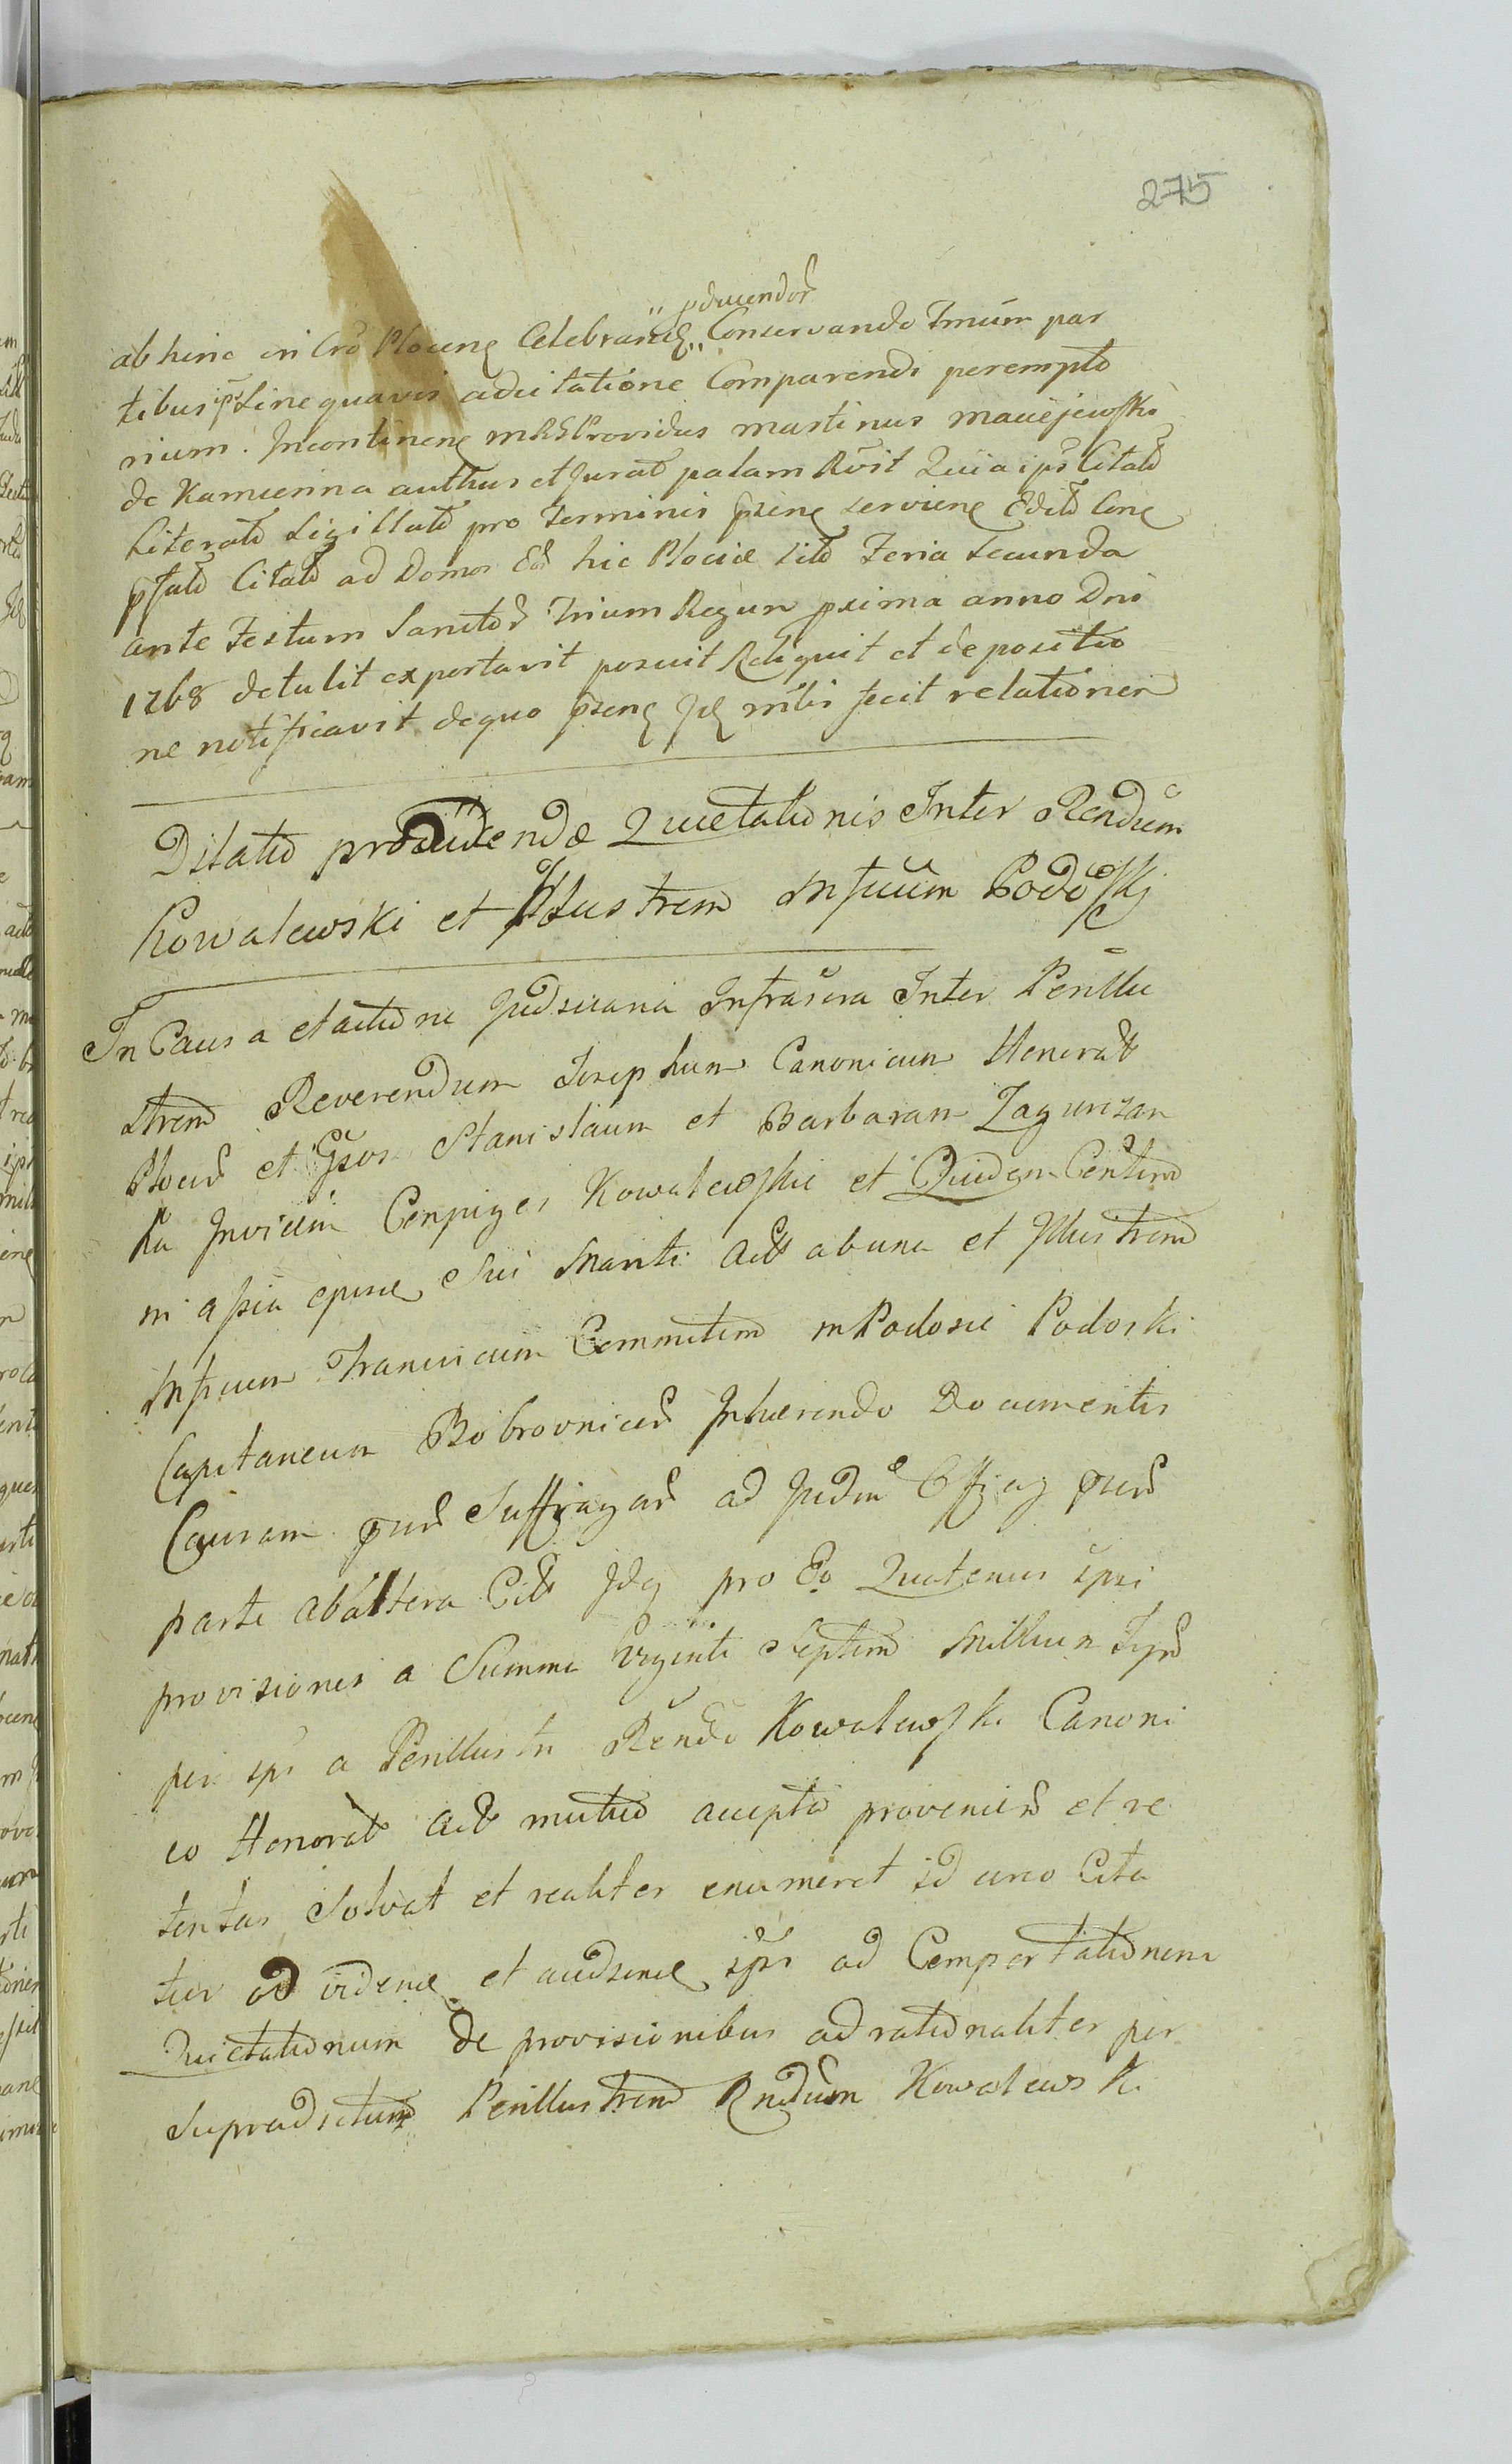 275
pducendor
ab hinc in Cro Plocen Celebrand Conservando Tmum par
tibus ps Sine quavis adcitatione Comparendi perempto
rium. Incontinen MRS Providus martinus maciejewski
de Kamienna authus et Jurat palam Rvit Quia ips Citat
Literat Sigillat pro Terminis psene serviene Edit Cone
psat Citat ad Domos Ead hic Plociae sit Feria Secunda
ante Festum Sanctor Trium Regum proxima anno Dni
1768 detulit exportavit posuit Reliquit et de positio
ne notificavit de quo psene Jd mihi fecit relationem
Dilatio producendae Quietationis Inter Rendum
Kowalewski et Illustrem Mfcum Podoski
In Causa et actione Judiciaria Infrascra Inter Perillu
strem Reverendum Josephum Canonicum Honorat
Plocen et Gsos Stanislaum et Barbaram Zagurzan
ka Invicem Conjuges Kowalewskie et Quidem Centum
in assia epucie Sui Mariti Act ab una et Illustrem
Mfcum Franciscum Commitem in Podosie Podoski
Capitaneum Bobrovnicen Inhaerendo Documentis
Causam psen Suffragan ad Judm Offii psen
parte ab altera Cit Idq pro Eo Quatenus ipsi
provisiones a Summa Viginti Septem Millium Typh
per ips a Perillustri Rendo Kowalewski Canoni
co Honorat Act mutuo accepta provenien et re
tentas Solvat et realiter enumeret id circo Cita
tur ad videnе et audiene ips ad Comportationem
Quietationum de provisionibus ad rationaliter per
Supradictum Perillustrem Rndum Kowalewski